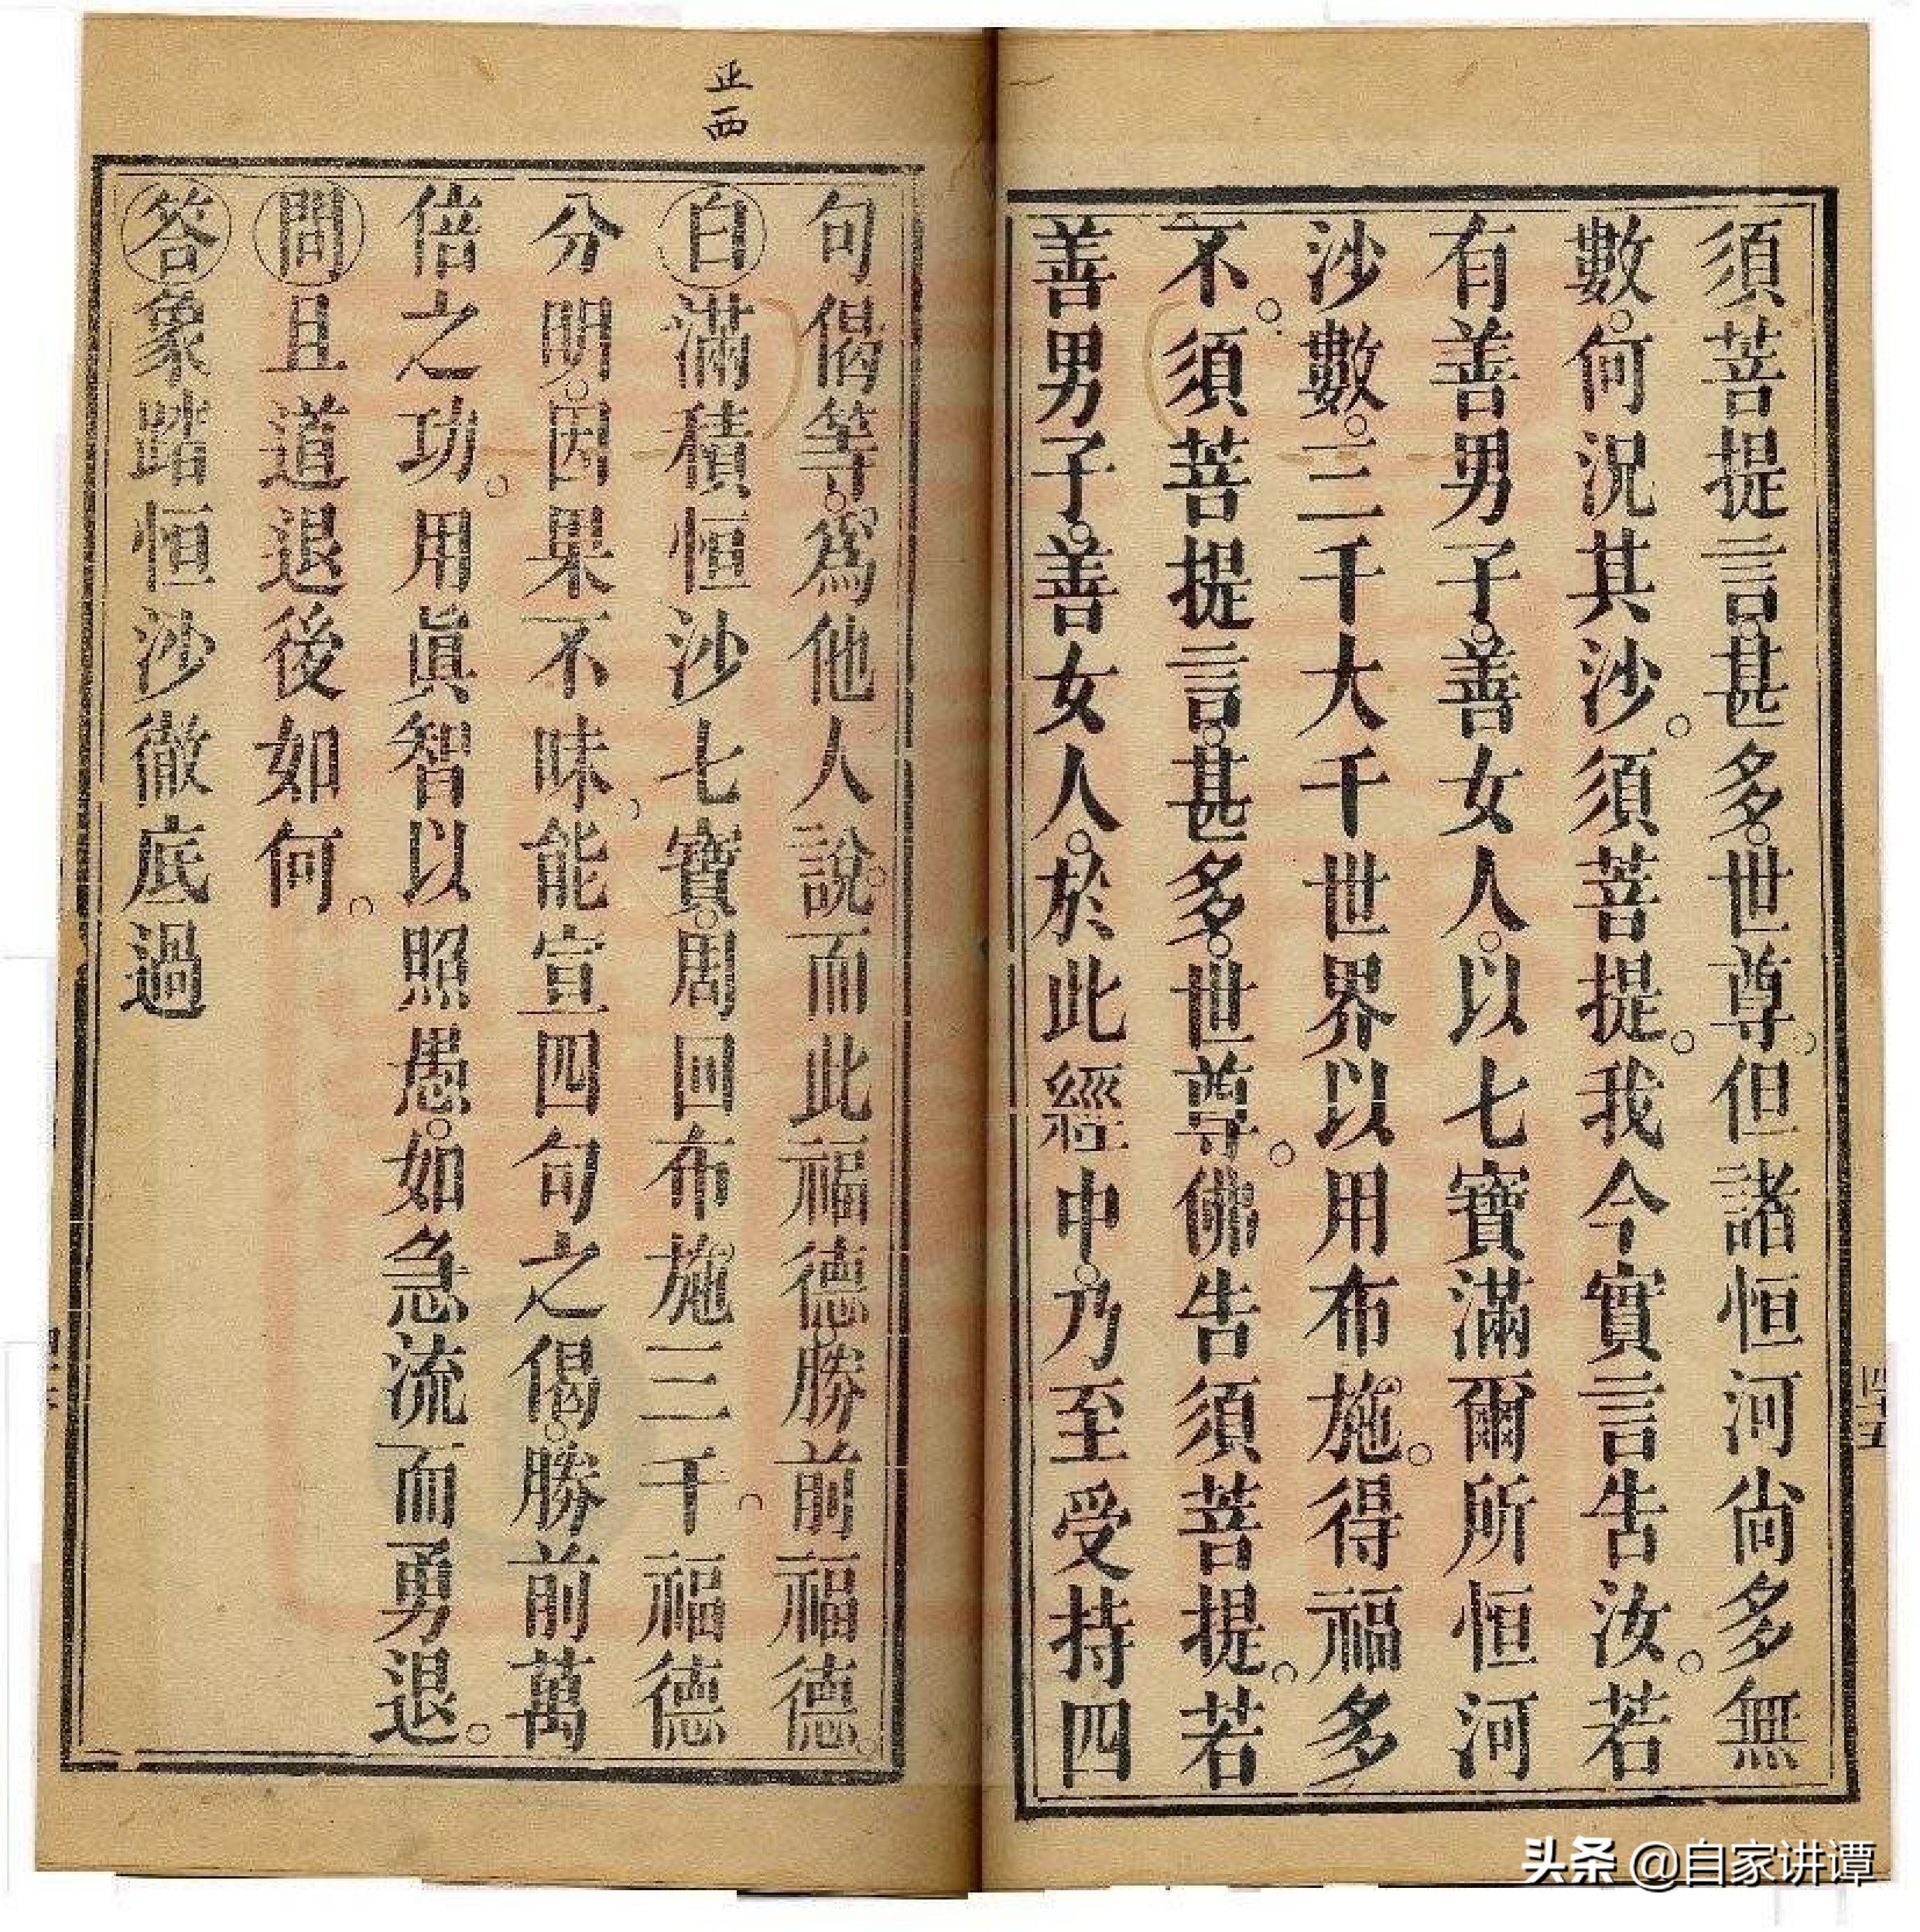 須菩提言。甚多。世尊。但諸恒河尙多無
數。何況其沙。須菩提。我今實言告汝。若
有善男子。善女人。以七寶滿爾所恒河
沙數。三千大千世界以用布施。得福多
不。須菩提言。甚多。世尊。佛告須菩提。若
善男子。善女人。於此經中。乃至受持四
四十五
正西
句偈等。爲他人說。而此福德。勝前福德。
白滿積恒沙七寶。周回布施三千。福德
分明。因果不昧。能宣四句之偈。勝前萬
倍之功。用眞智以照愚。如急流而勇退。
問且道退後如何。
答象踏恒沙徹底過
头条 @自家讲谭